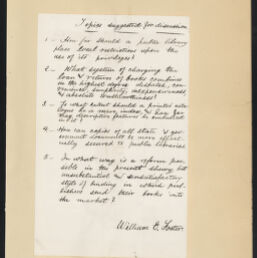 Topics suggested for discussion
1. - How far should a public library
place local restrictions upon the
use of its privileges?
2. - What system of charging the
loan & return of books combines
in the highest degree dispatch, con-
tinued simplicity, inexpensiveness,
& absolute trustworthiness?
3. - To what extent should a printed cata-
logue be a mere index, & how far
may descriptive features be embodied
in it?
4. - How can copies of all state & gov-
ernment documents be more effect-
ually secured to public libraries
5. - In what way is a reform pos-
sible in the present showy but
unsubstantial & unsatisfactory
style of binding in which pub-
lishers send their books into
the market?
William E. Foster